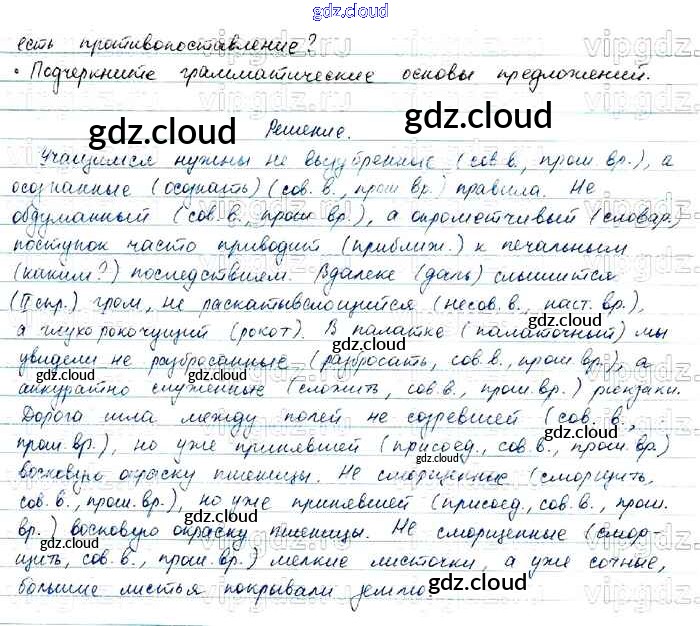 gdz.cloud
есть противопоставление?
• Подчеркните грамматические основы предложений.
gdz.cloud
gdz.cloud
Решение.
Учащимся нужны не вызубренные (сов. в., прош. вр.), а
осознанные (осознать) (сов. в., прош. вр.) правила. Не
обдуманный (сов. в., прош. вр.), а опрометчивый (словар.)
поступок часто приводит (приближ.) к печальным
(каким?) последствием. Вдалеке (даль) слышится
(II спр.) гром, не раскатывающийся (несов. в., наст. вр.),
а глухо рокочущий (рокот). В палатке (палаточный) мы
увидели не разбросанные (разбросать, сов. в., прош. вр.), а
аккуратно сложенные (сложить, сов. в., прош. вр.) рюкзаки.
Дорога шла между полей не созревшей (сов. в.,
прош. вр.), но уже принявшей (присоед., сов. в., прош. вр.)
восковую окраску пшеницы. Не сморщенные (сморщить,
сов. в., прош. вр.), но уже принявшей (присоед., сов. в., прош.
вр.) восковую окраску пшеницы. Не сморщенные (смор
щить, сов. в., прош. вр.) мелкие листочки, а уже сочные,
большие листья покрывали землю
gdz.cloud
gdz.cloud
gdz.cloud
gdz.cloud
gdz.cloud
gdz.cloud
gdz.cloud
gdz.cloud